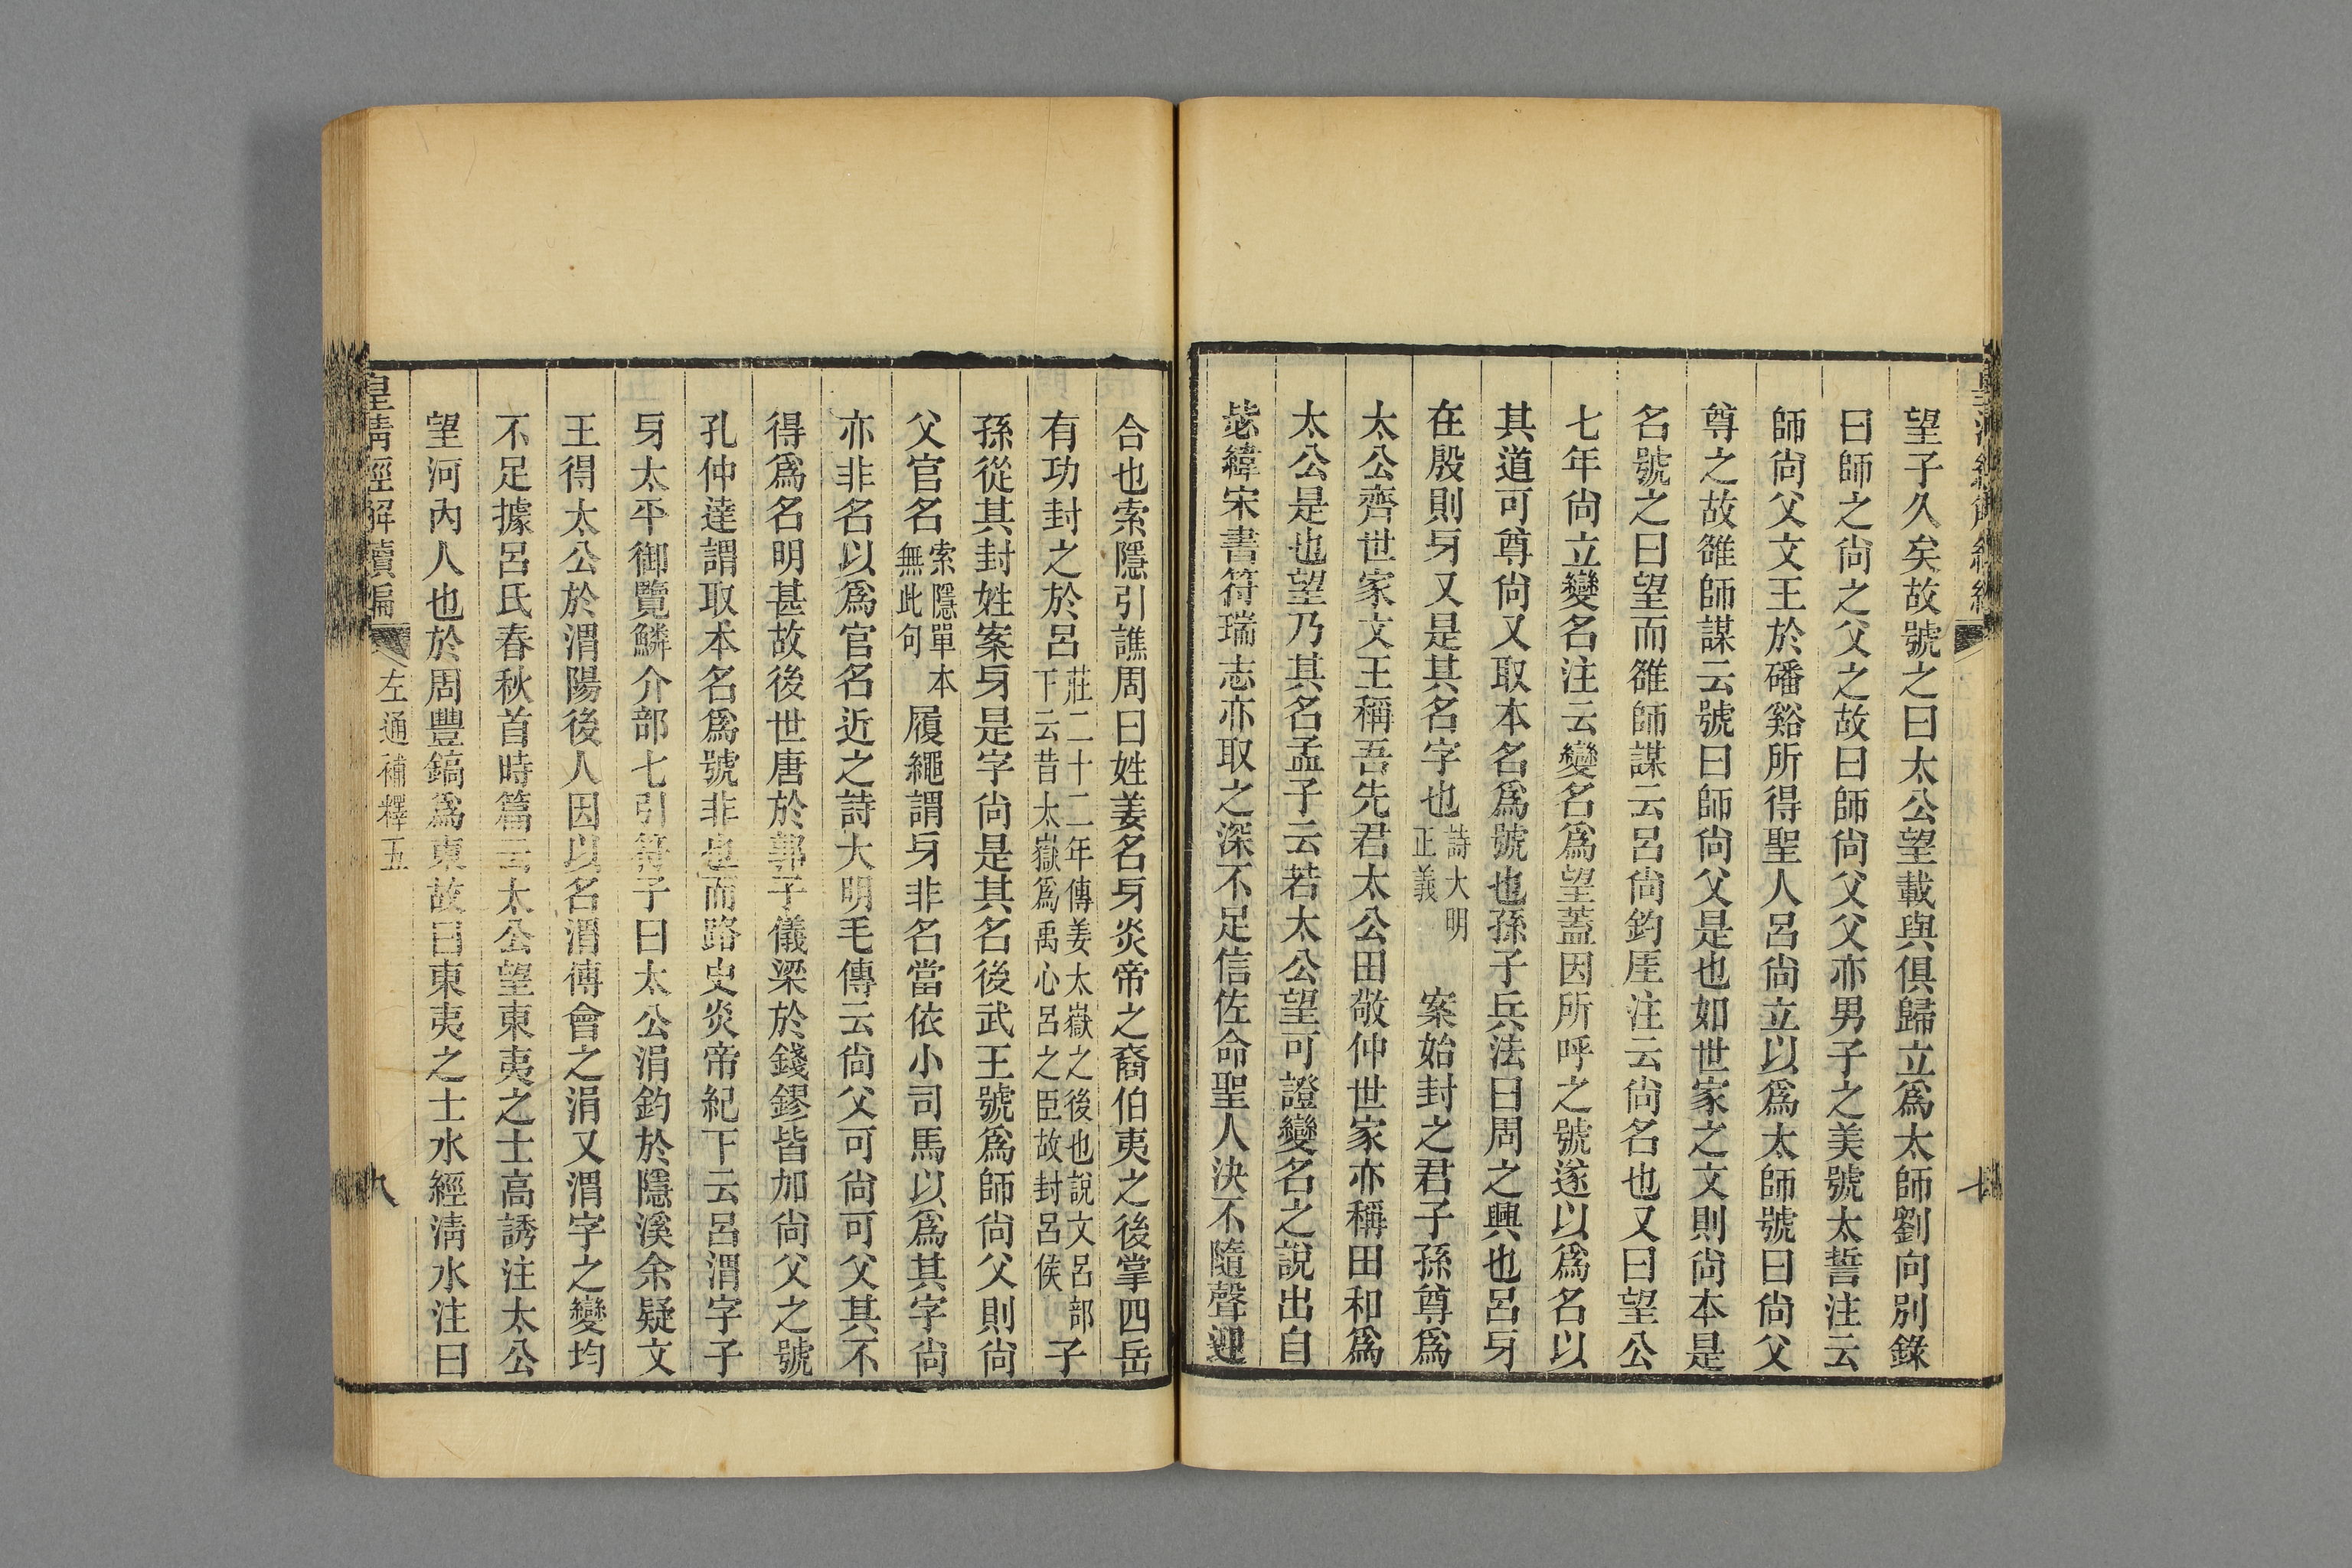 望子久矣故號之曰太公望載與俱歸立爲太師劉向別錄
曰師之尙之父之故曰師尙父父亦男子之美號太誓注云
師尙父文王於磻谿所得聖人呂尙立以爲太師號曰尙父
尊之故雒師謀云號曰師尙父是也如世家之文則尙本是
名號之曰望而雒師謀云呂尙釣厓注云尙名也又曰望公
七年尙立變名注云變名爲望蓋因所呼之號遂以爲名以
其道可尊尙又取本名爲號也孫子兵法曰周之興也呂牙
在殷則牙又是其名字也詩大明正義案始封之君子孫尊爲
太公齊世家文王稱吾先君太公田敬仲世家亦稱田和爲
太公是也望乃其名孟子云若太公望可證變名之說出自
毖緯宋書符瑞志亦取之深不足信佐命聖人決不隨聲迎
合也索隱引譙周曰姓姜名牙炎帝之裔伯夷之後掌四岳
有功封之於呂莊二十二年傳姜太嶽之後也說文呂部下云昔太嶽爲禹心呂之臣故封呂侯子
孫從其封姓案牙是字尙是其名後武王號爲師尙父則尙
父官名索隱單本無此句履繩謂牙非名當依小司馬以爲其字尙
亦非名以爲官名近之詩大明毛傳云尙父可尙可父其不
得爲名明甚故後世唐於郭子儀梁於錢鏐皆加尙父之號
孔仲達謂取本名爲號非也而路史炎帝紀下云呂渭字子
牙太平御覽鱗介部七引苻子曰太公涓釣於隱溪余疑文
王得太公於渭陽後人因以名渭傅會之涓又渭字之變均
不足據呂氏春秋首時篇云太公望東夷之士高誘注太公
望河內人也於周豐鎬爲東故曰東夷之士水經淸水注曰
皇淸經解續編 左通補釋五 九